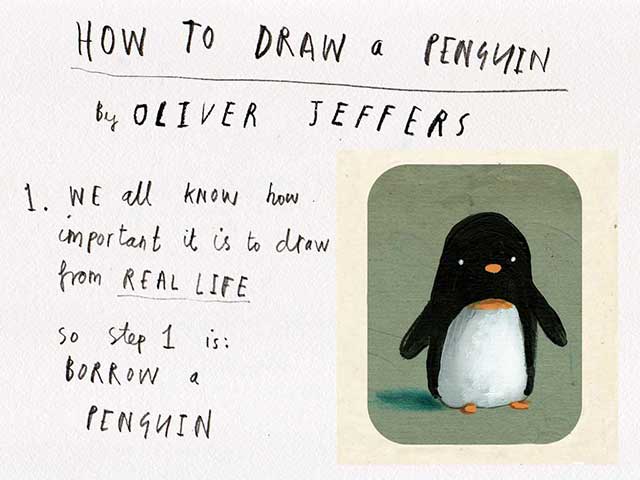 HOW TO DRAW a PENGUIN
By OLIVER JEFFERS
1. WE all KNOW how
important it is to draw
from REAL LIFE
so step 1 is:
BORROW a
PENGUIN